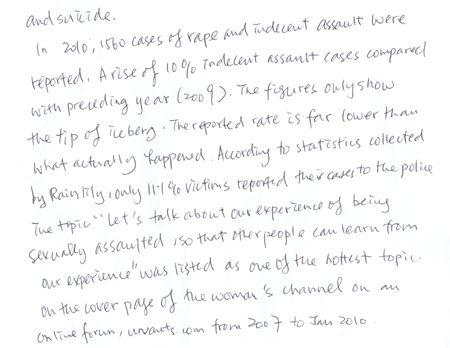 and suicide.
In 2010, 1560 cases of rape and indecent assault were
reported. A rise of 10% indecent assault cases compared
with preceding year (2009). The figures only show
the tip of iceberg. The reported rate is far lower than
what actually happened. According to statistics collected
by Rainlily, only 11.1% victims reported their cases to the police
The topic "Let's talk about our experience of being
sexually assaulted, so that other people can learn from
our experience" was listed as one of the hottest topic
on the cover page of the woman's channel on an
online forum, uwants.com from 2007 to Jan 2010.